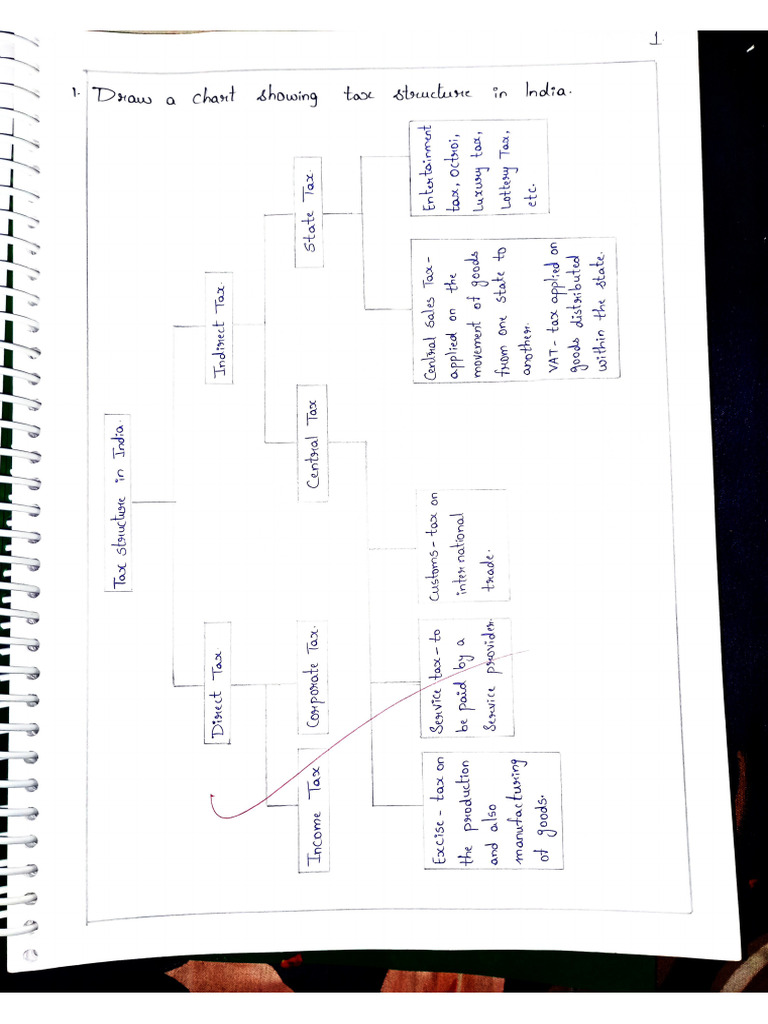 1
1. Draw a chart showing tax structure in India.
Tax structure in India.
Direct Tax
Indirect Tax.
Income Tax
Corporate Tax.
Central Tax
State Tax.
Excise - tax on
the production
and also
manufacturing
of goods.
Service tax - to
be paid by a
Service provider.
Customs - tax on
international
trade.
Central Sales Tax -
applied on the
movement of goods
from one state to
another.
VAT - tax applied on
goods distributed
within the state.
Entertainment
tax, Octroi,
Luxury tax,
Lottery Tax,
etc.